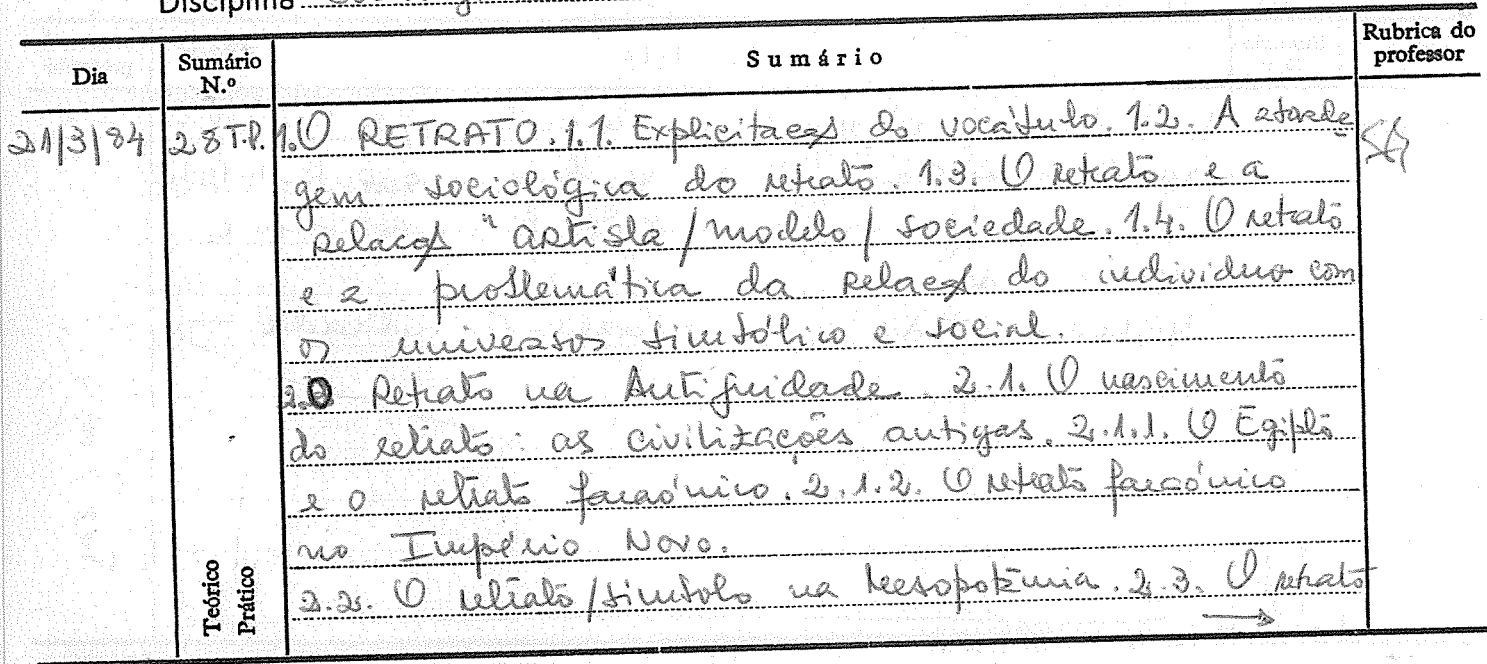 Disciplina
Dia
Sumário N.º
Sumário
Rubrica do professor
21/3/84
28 T.P.
1. O RETRATO. 1.1. Explicitação do vocábulo. 1.2. A aborda
gem sociológica do retrato. 1.3. O retrato e a
relação "artista/modelo/sociedade. 1.4. O retrato
e a problemática da relação do indivíduo com
os universos simbólico e social.
2. O Retrato na Antiguidade. 2.1. O nascimento
do retrato: as civilizações antigas. 2.1.1. O Egipto
e o retrato faraónico. 2.1.2. O retrato faraónico
no Império Novo.
2.2. O retrato/símbolo na Mesopotâmia. 2.3. O retrato
→
Teórico
Prático